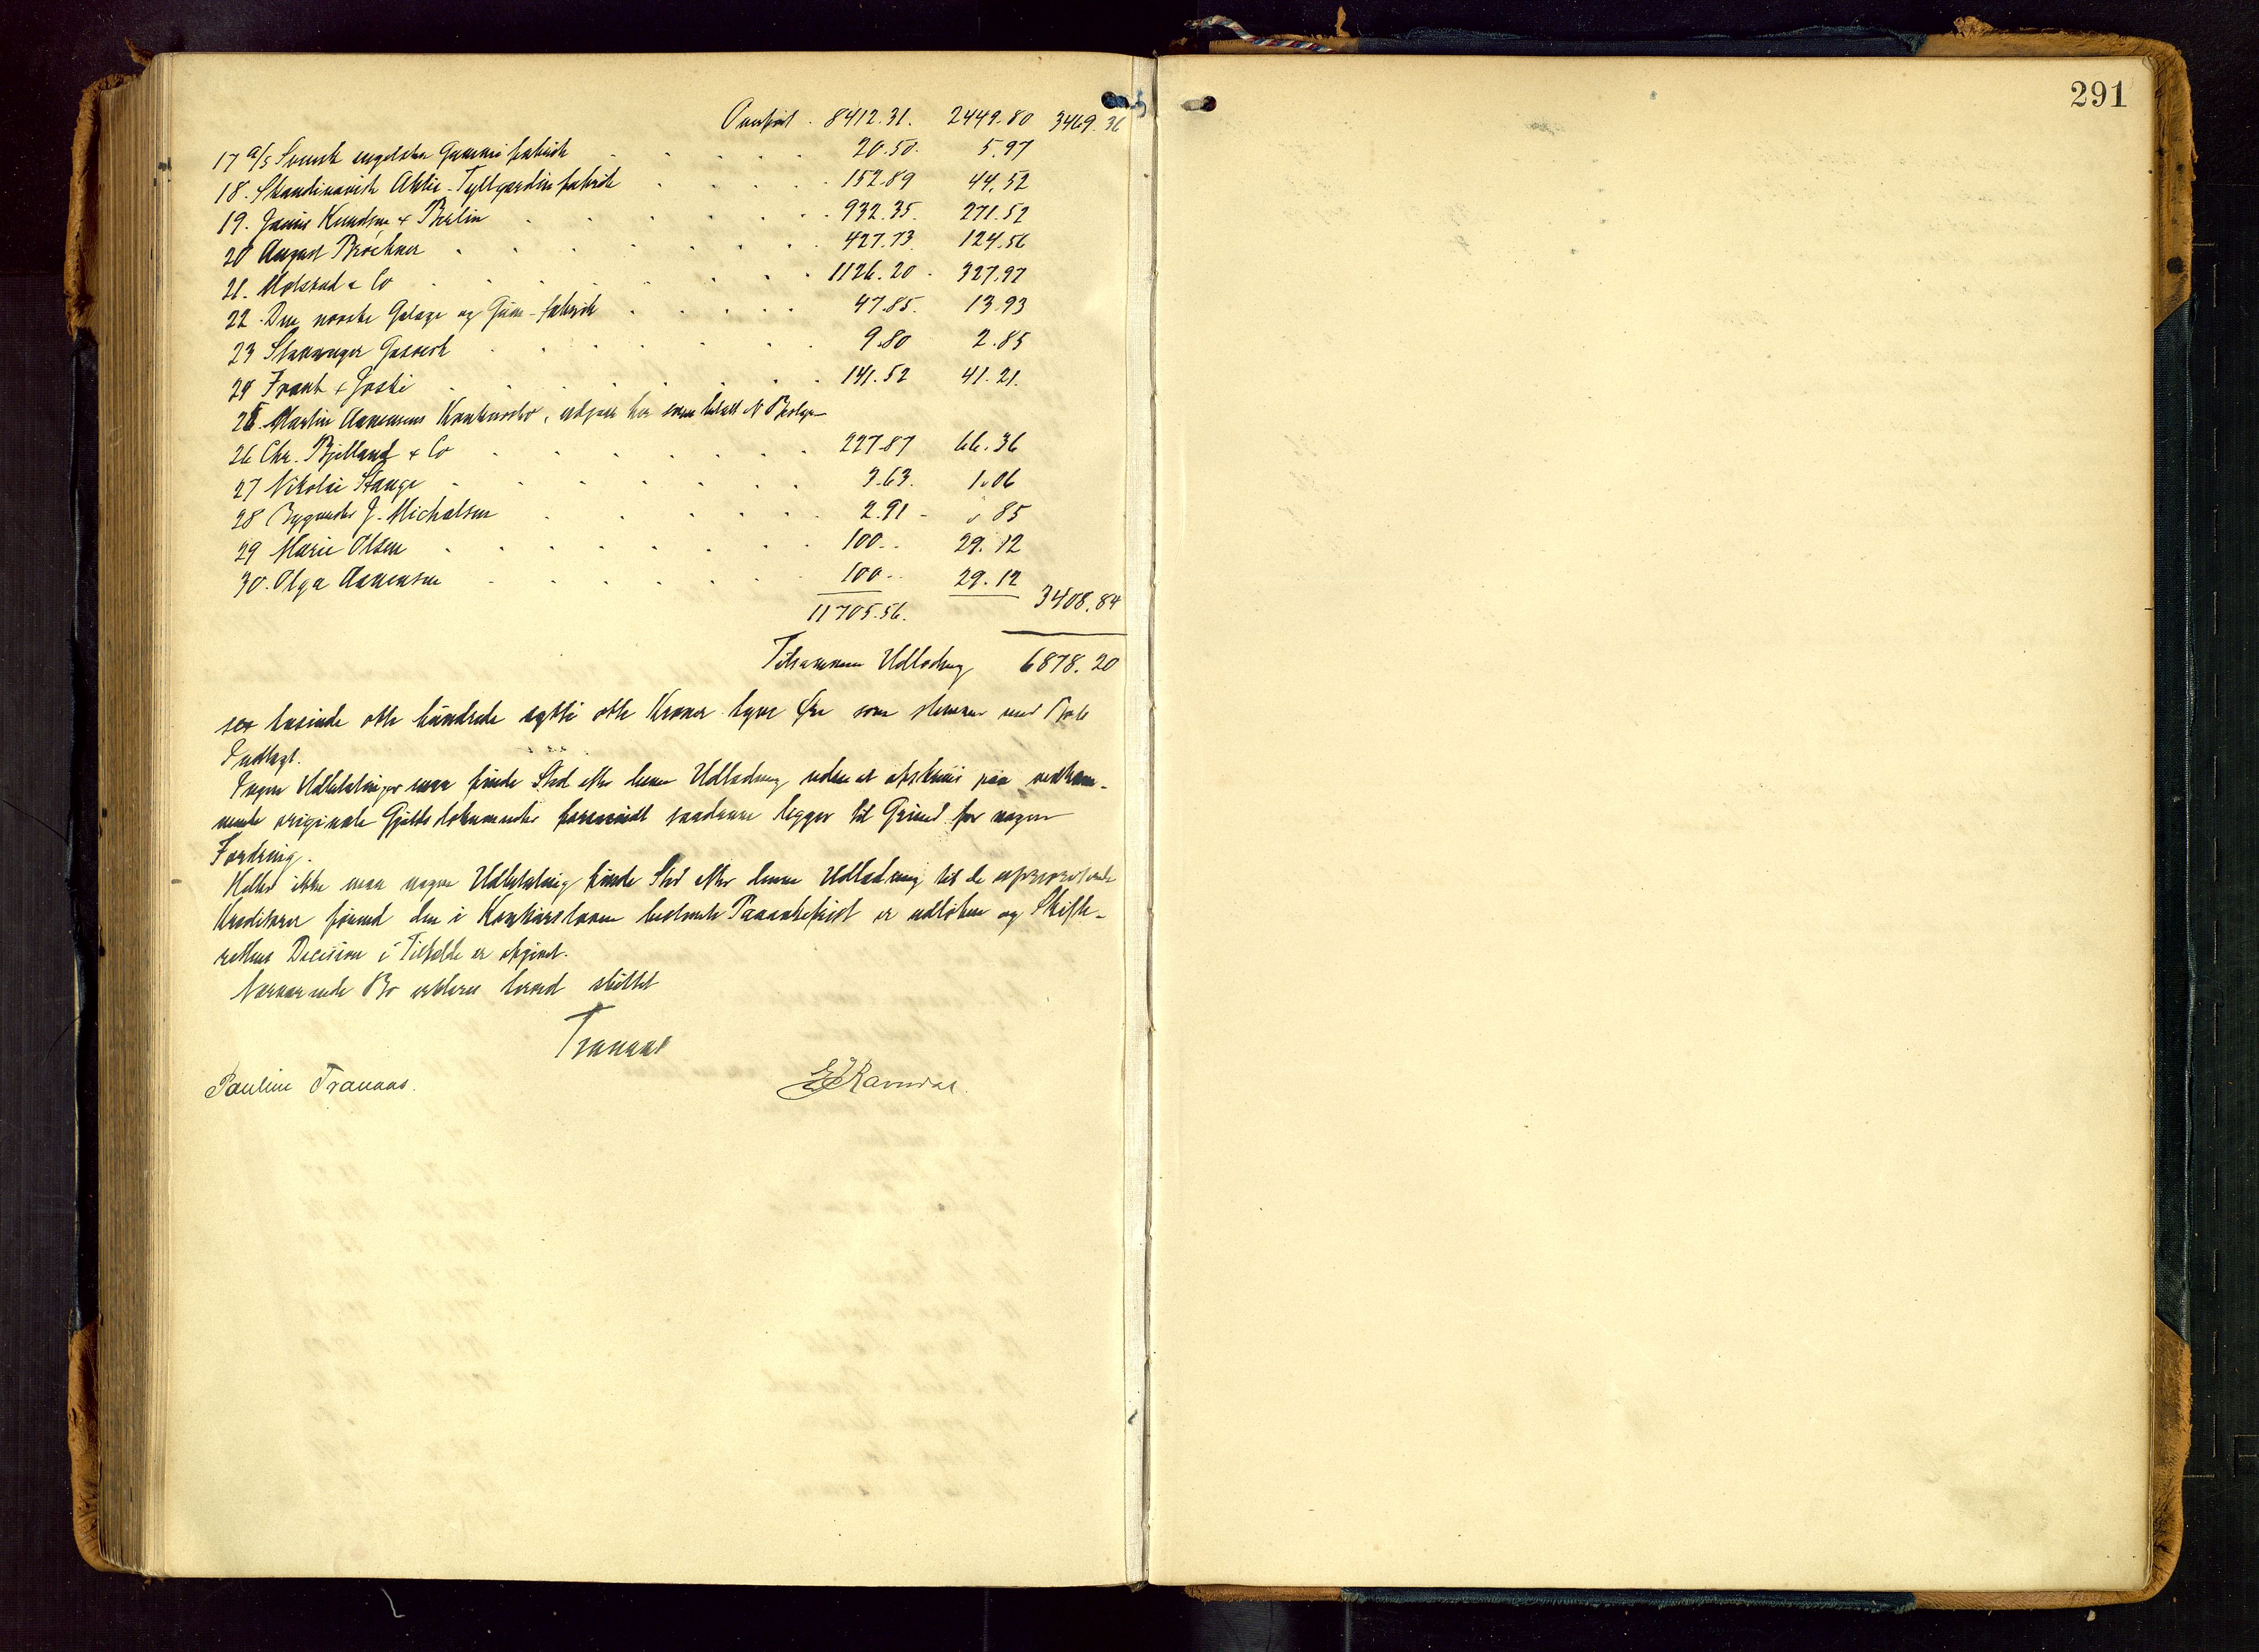 291
Overført . 8412.31. 2449.80 3469.36
17 A/S Svensk engelske Gummifabrik 20.50. 5.97
18. Skandinavisk Aktie-Tyllgardinfabrik 152.89 44.52
19. Janus Knudsen & Berlin 932.35. 271.52
20 August Bröchner 427.73. 124.56
21. Mølstad & Co 1126.20 - 327.97
22. Den norske Galoge og Gum-fabrik 47.85. 13.93
23 Stavanger Gasverk 9.80 2.85
24 Frank & Goski 141.52 41.21.
25. Martin Aanensens Konkursbo, udgaar her som
26 Chr. Bjelland & Co 227.87 66.36
27 Nikolai Stange 3.63. 1.06
28 Bygmester J. Michalsen 2.91 - " 85
29 Marie Olsen 100.. 29.12
30. Olga Aanensen 100.. 29.12
11705.56. 3408.84
Tilsammen Udlodning 6878.20
sex tusinde otte hundrede sytti otte Kroner tyve Øre som stemmer med Boets
Indtægt.
Ingen Udbetalinger maa finde Sted efter denne Udlodning uden at afskrives paa vedkom-
mende originale Gjældsdokumenter forsaavidt saadanne ligger til Grund for nogen
Fordring.
Heller ikke maa nogen Udbetaling finde Sted efter denne Udlodning til de uprioriterede
Kreditorer førend den i Konkursloven bestemte Paaankefrist er udløben og Skifte-
rettens Decision i Tilfælde er afgivet.
Nærværende Bo erklæres hermed sluttet
Tranaas
Pauline Tranaas. Ravndal.